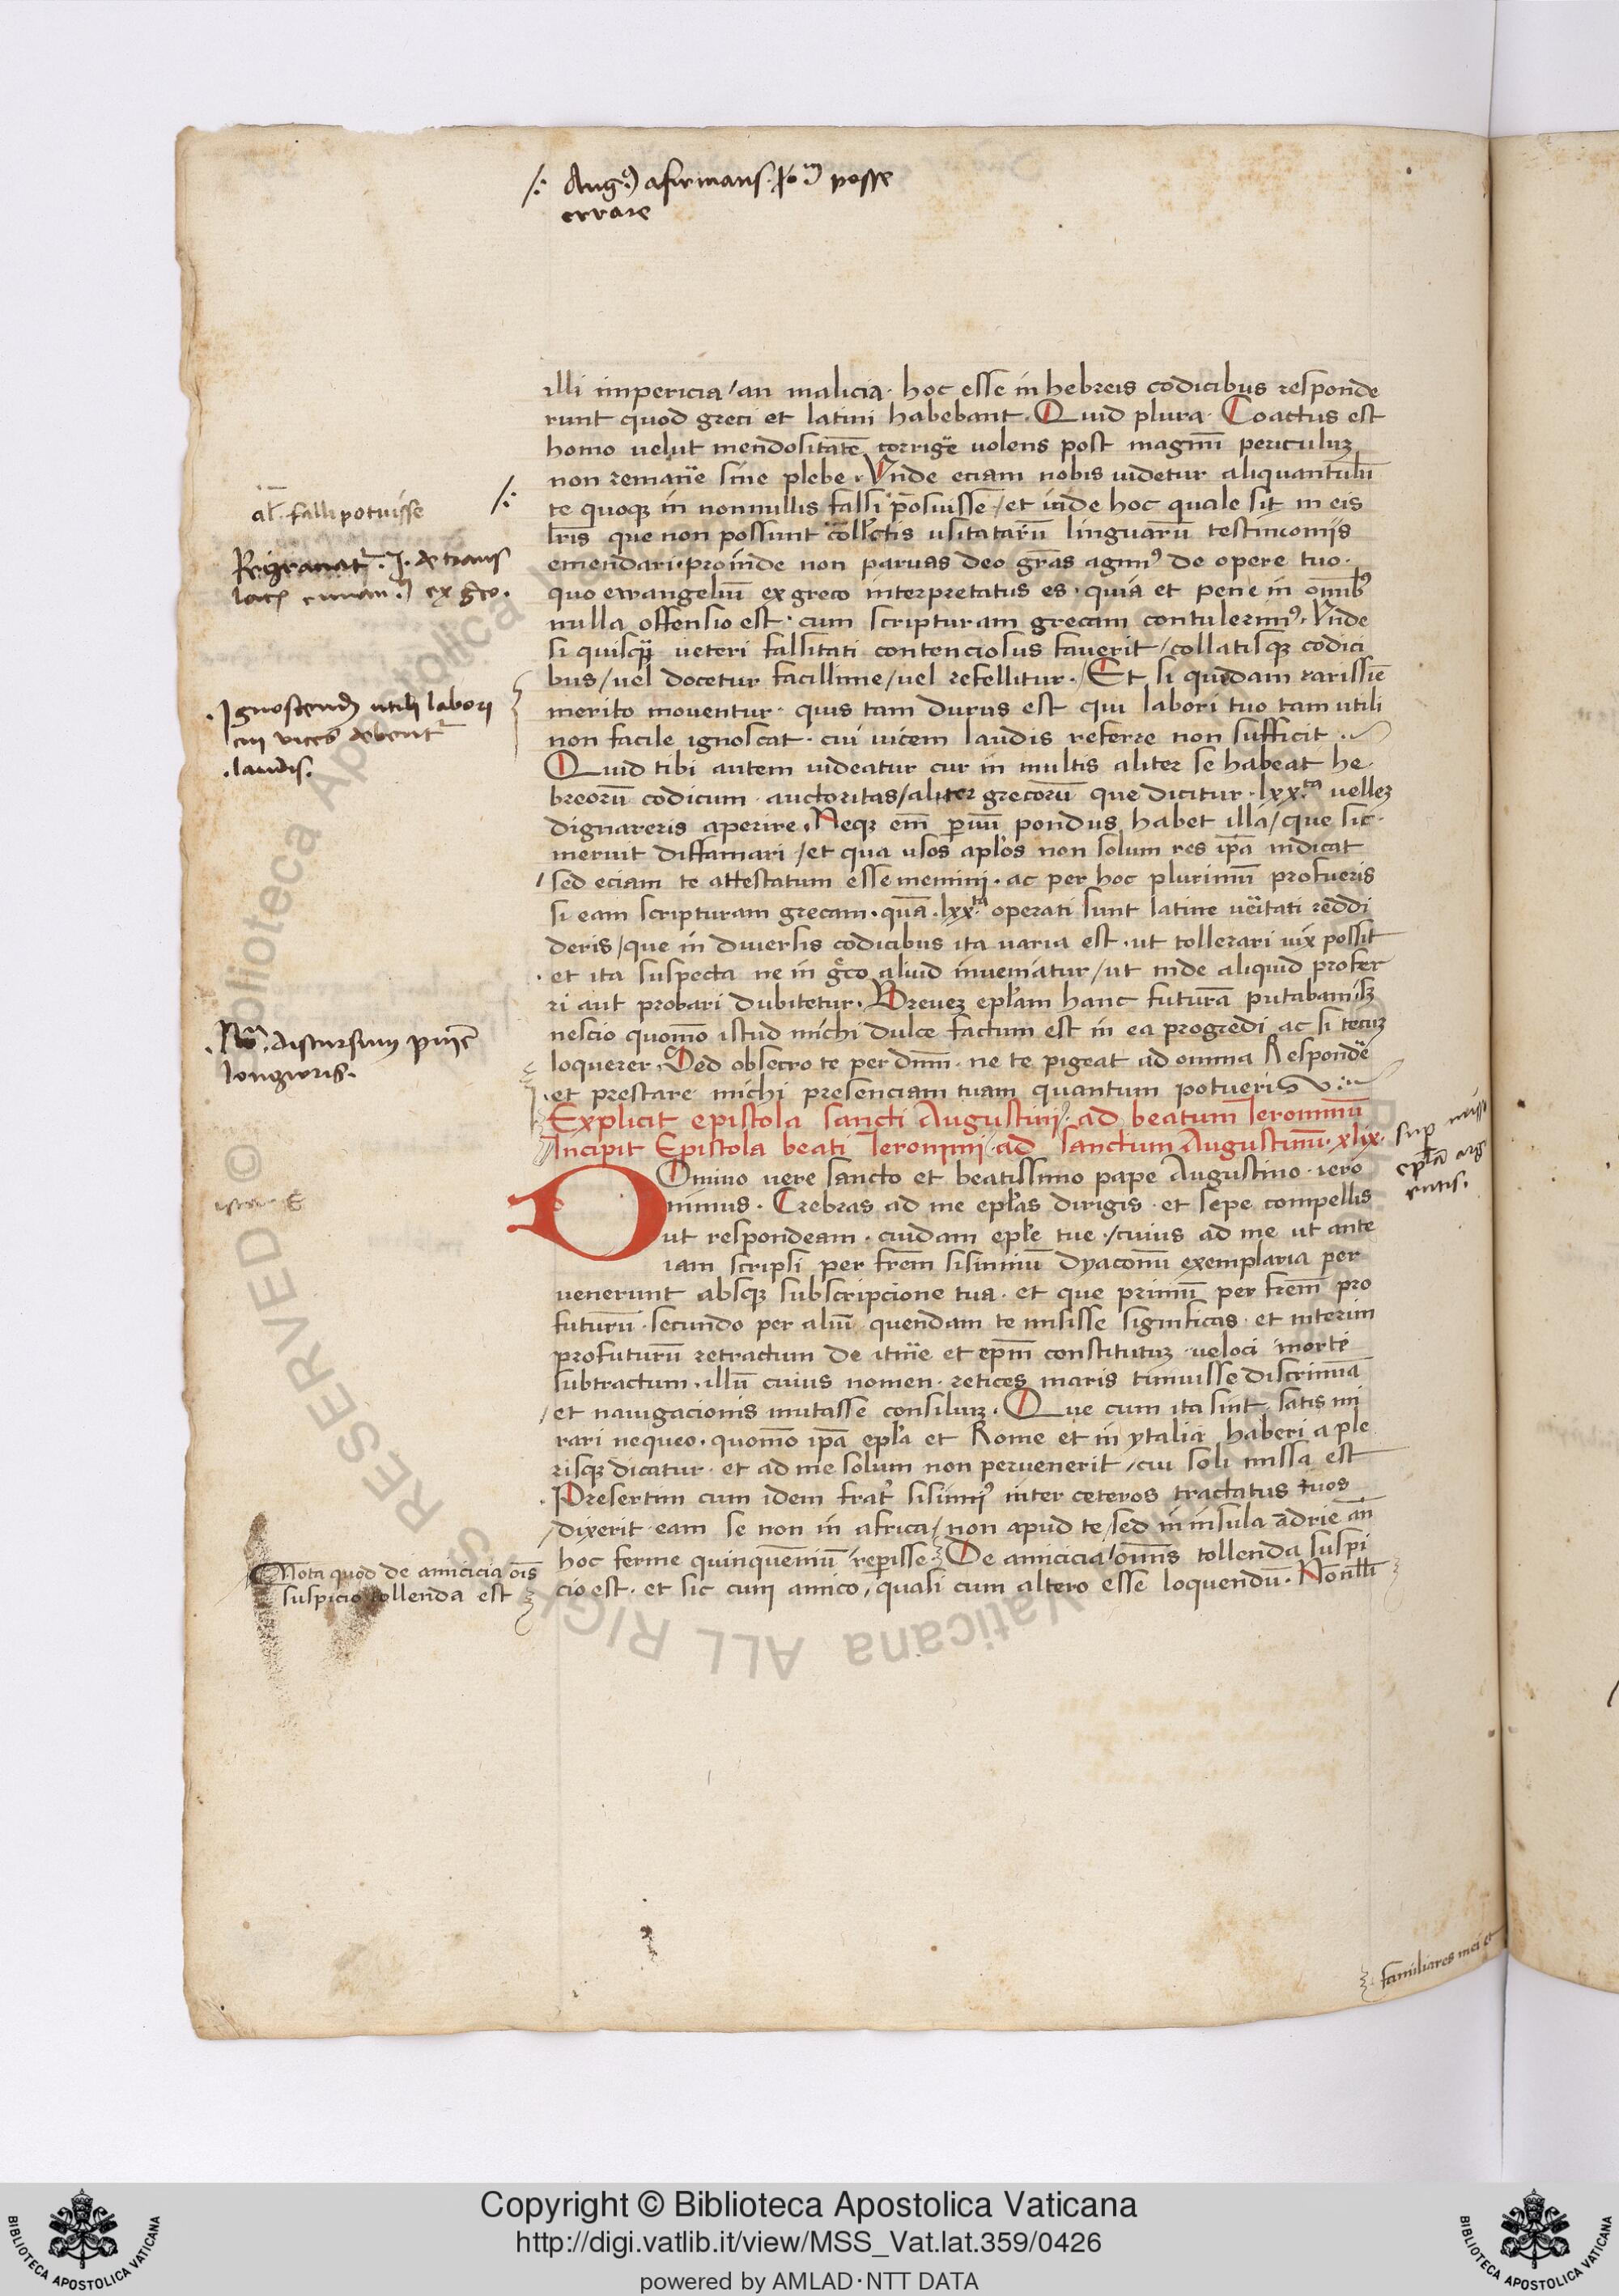 /: Aug(us) afirmans posse
errare
illi impericia / an malicia · hoc esse in hebreis codicibus responde
runt quod greci et latini habebant · Quid plura · Coactus est
homo velut mendositatē corrigē volens post magnū periculuȝ
non remanē sine plebe · Vnde eciam nobis videtur aliquantulū
te quoqȝ in nonnullis falli posuissē / et vide hoc quale sit in eis
lr̄is que non possunt coll'ctis usitatarū linguarū testimonijs
emendari · proinde non parvas deo gr̄as agim9 de opere tuo ·
quo ewangeliū ex greco interpretatus es · quia et pene in om̄ib9
nulla offensio est · cum scripturam grecam contulerim9 · Vnde
si quisqȝ veteri falsitati contenciosus faverit / collatisqȝ codici
bus / vel docetur facillime / vel refellitur · Et si quedam rarissiē
merito moventur · quis tam durus est qui labori tuo tam utili
non facile ignoscat · cui vicem laudis referre non sufficit ·
Quid tibi autem videatur cur in multis aliter se habeat he
breorū codicum auctoritas / aliter grecorū que dicitur · lxx.ta velleȝ
dignareris aperire · Neqȝ em̄ p̄vū pondus habet illa / que sic
meruit diffamari / et qua usos apl'os non solum res ip̄a indicat
/ sed eciam te attestatum esse memini · ac per hoc plurimū profueris
si eam scripturam grecam · quā · lxx.ta operati sunt latine v̄itati reddi
deris / que in diversis codicibus ita varia est · ut tollerari vix possit
· et ita suspecta ne in gͬco aliud inveniatur / ut inde aliquid profer
ri aut probari dubitetur · Breveȝ epl'am hanc futurā putabam sȝ
nescio quom̄o istud michi dulce factum est in ea progredi ac si tecuȝ
loquerer · Sed obsecro te per dn̄m · ne te pigeat ad omnia Respondē
· et prestare michi presenciam tuam quantum potueris
Explicit epistola sancti Augustini · ad beatum Ieronimū
Incipit Epistola beati Ieronimi / ad sanctum Augustinū · xlix ·
Domino vere sancto et beatissimo pape Augustino · iero
nimus · Crebras ad me epl'as dirigis · et sepe compellis
ut respondeam · cuidam epl'e tue · / cuius ad me ut ante
iam scripsi per fr̄em sisinniū dyaconū exemplaria per
venerunt absqȝ subscripcione tua · et que primū per fr̄em pro
futurū · secundo per aliū quendam te misisse significas · et interim
profuturū retractum de itin̄e et ep̄m constitutuȝ · veloci morte
subtractum · illū cuius nomen · retices maris timuisse discrimīa
/ et navigacionis mutasse consiliuȝ · Que cum ita sint · satis mi
rari nequeo · quom̄o ip̄a epl'a et Rome et in ytalia haberi a ple
risqȝ dicatur · et ad me solum non pervenerit / cui soli missa est
· Presertim cum idem frat' sisinni9 inter ceteros tractatus tuos
/ dixerit eam se non in africa / non apud te / sed in insula adrie an̄
hoc ferme quinquenniū / rep̄isse · De amicicia / omn̄s tollenda suspi
cio est · et sic cum amico / quasi cum altero esse loquendū · Nonnll'i
al'. falli potuisse
/:
· Ignoscend utili labori
cui vices debent
· laudis ·
discursum
longioris ·
ep̄l'a
Nota quod de amicicia ōis
suspicio tollenda est
familiares mei et
Biblioteca Apostolica Vaticana ALL RIGHTS RESERVED ©
Copyright © Biblioteca Apostolica Vaticana
http://digi.vatlib.it/view/MSS_Vat.lat.359/0426
powered by AMLAD·NTT DATA
BIBLIOTECA APOSTOLICA VATICANA
BIBLIOTECA APOSTOLICA VATICANA